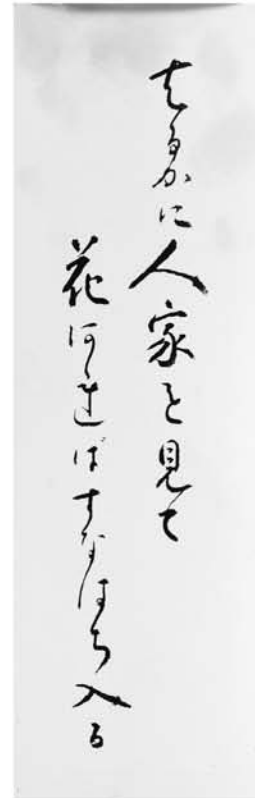 はるかに人家を見て
花あればすなはち入る